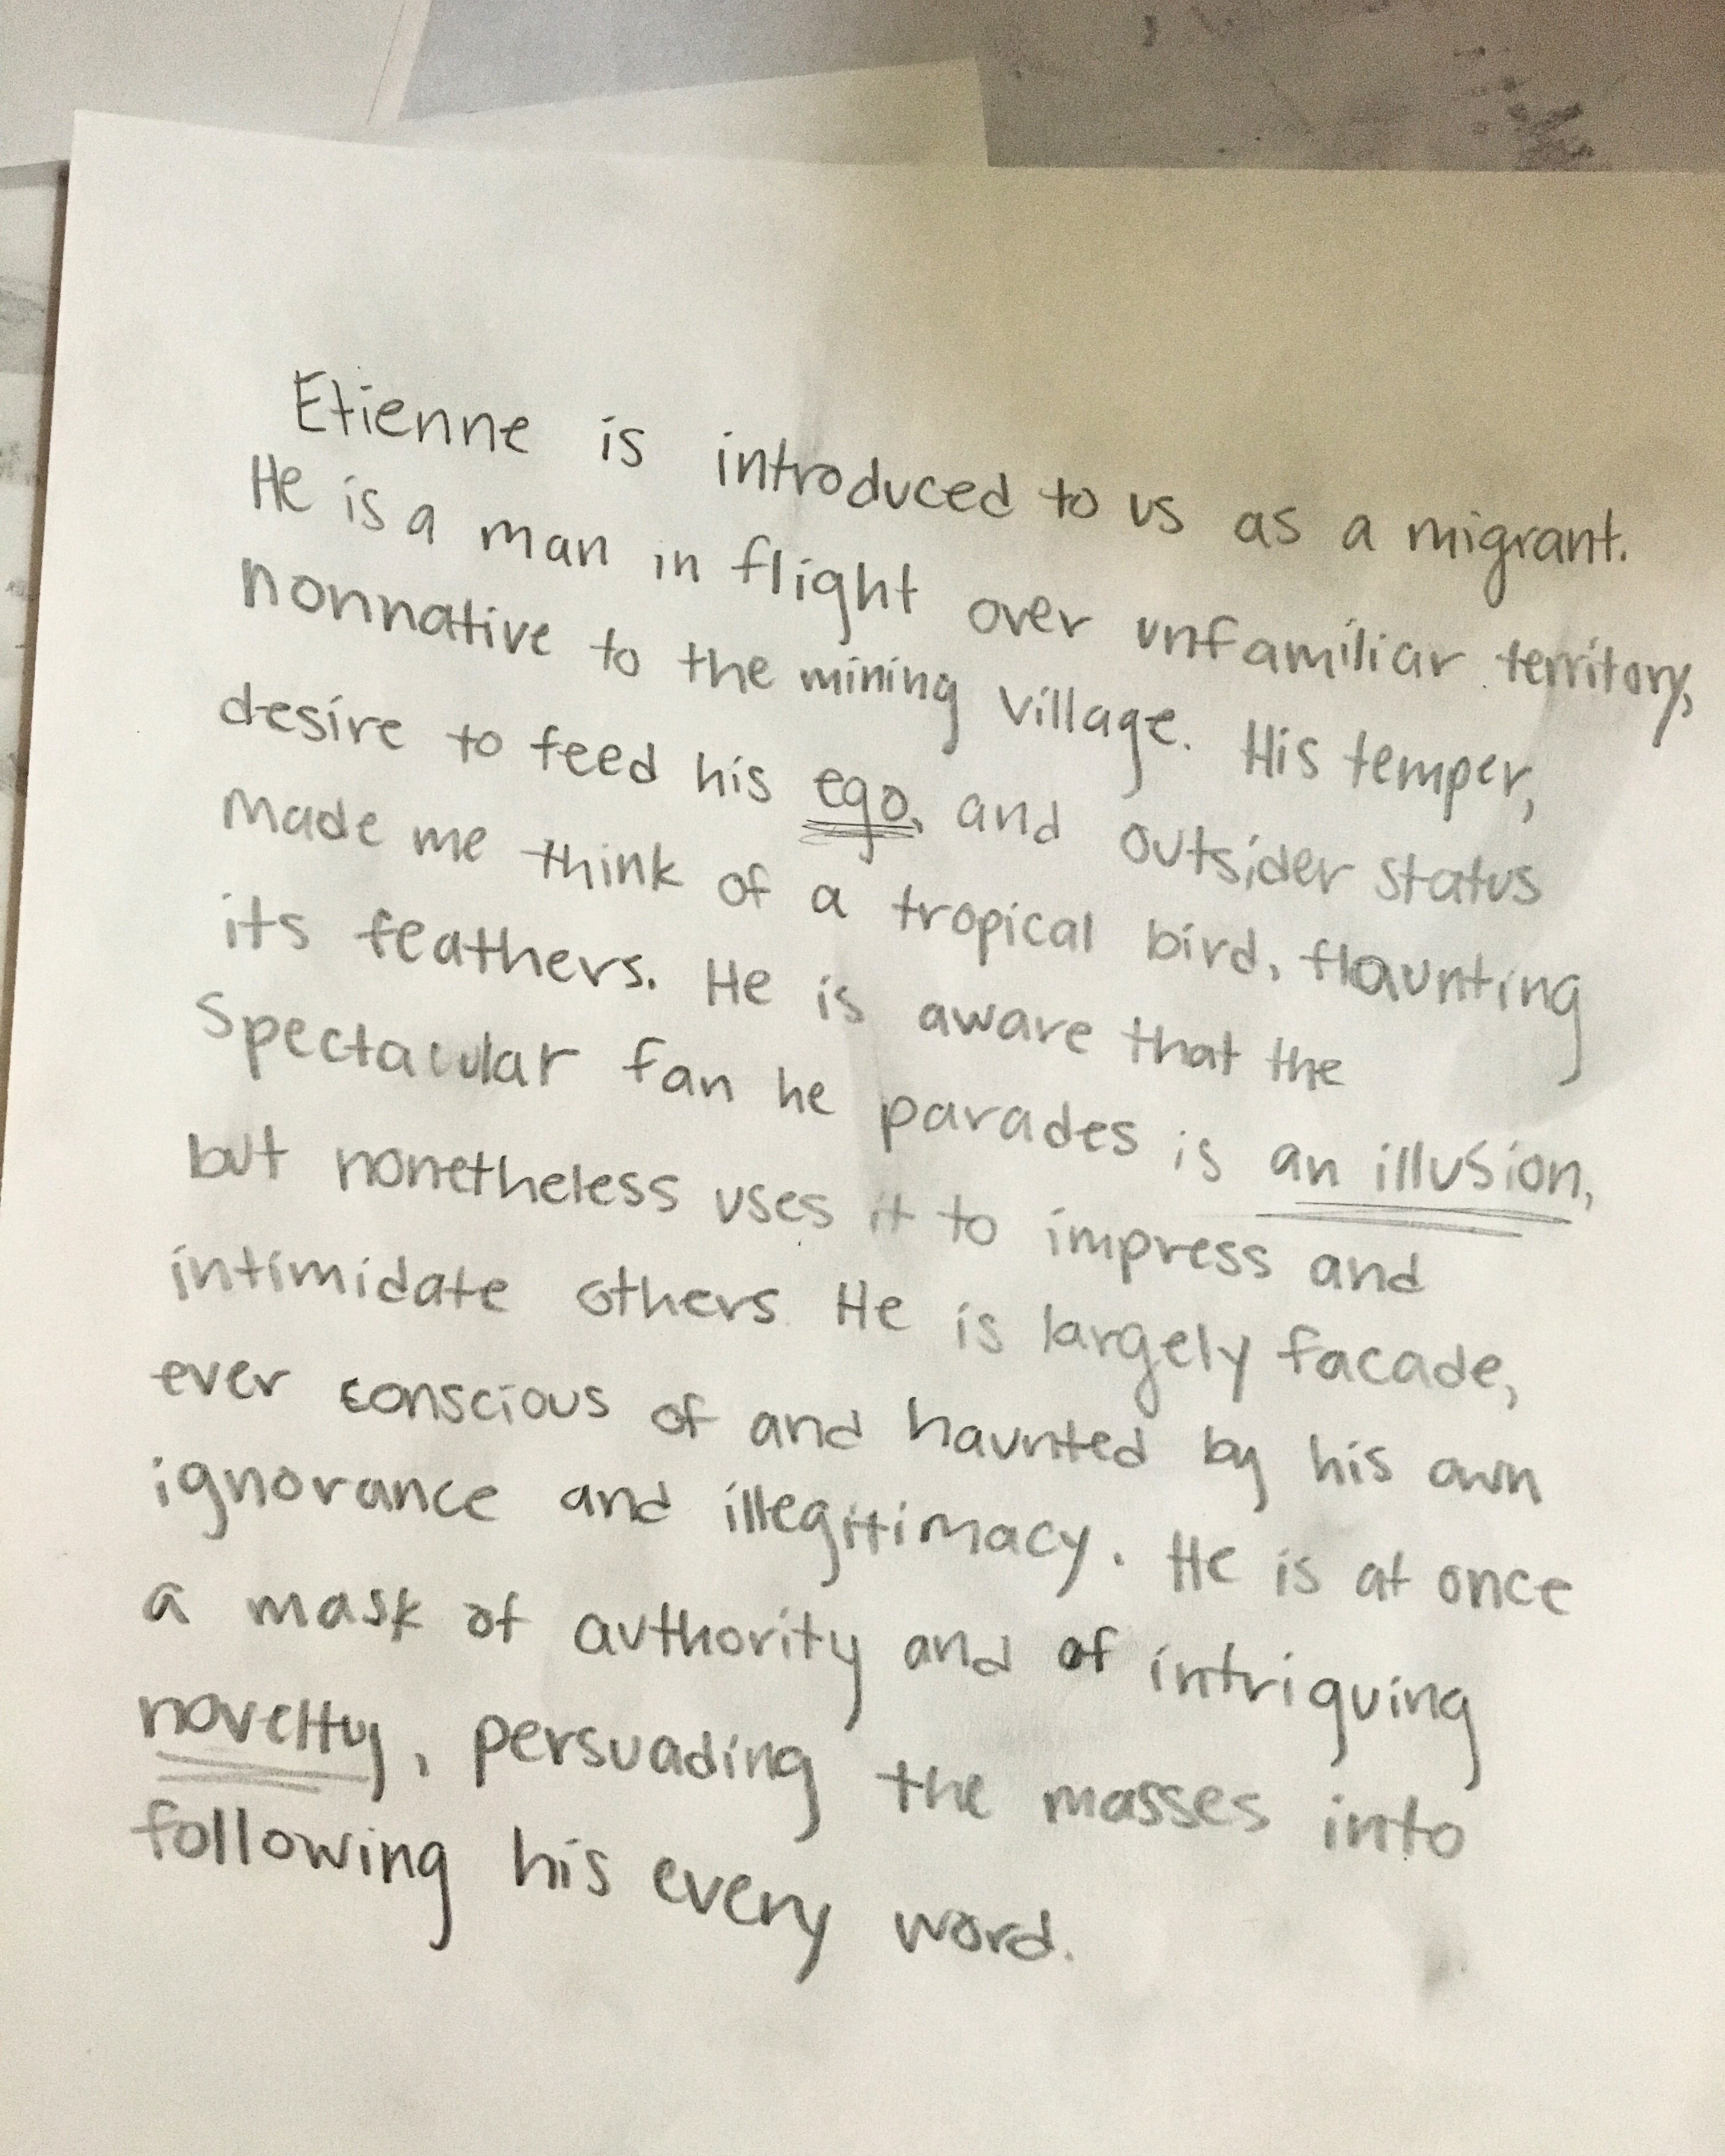 Etienne is introduced to us as a migrant.
He is a man in flight over unfamiliar territory,
nonnative to the mining village. His temper,
desire to feed his ego, and outsider status
made me think of a tropical bird, flaunting
its feathers. He is aware that the
spectacular fan he parades is an illusion,
but nonetheless uses it to impress and
intimidate others. He is largely facade,
ever conscious of and haunted by his own
ignorance and illegitimacy. He is at once
a mask of authority and of intriguing
novelty, persuading the masses into
following his every word.